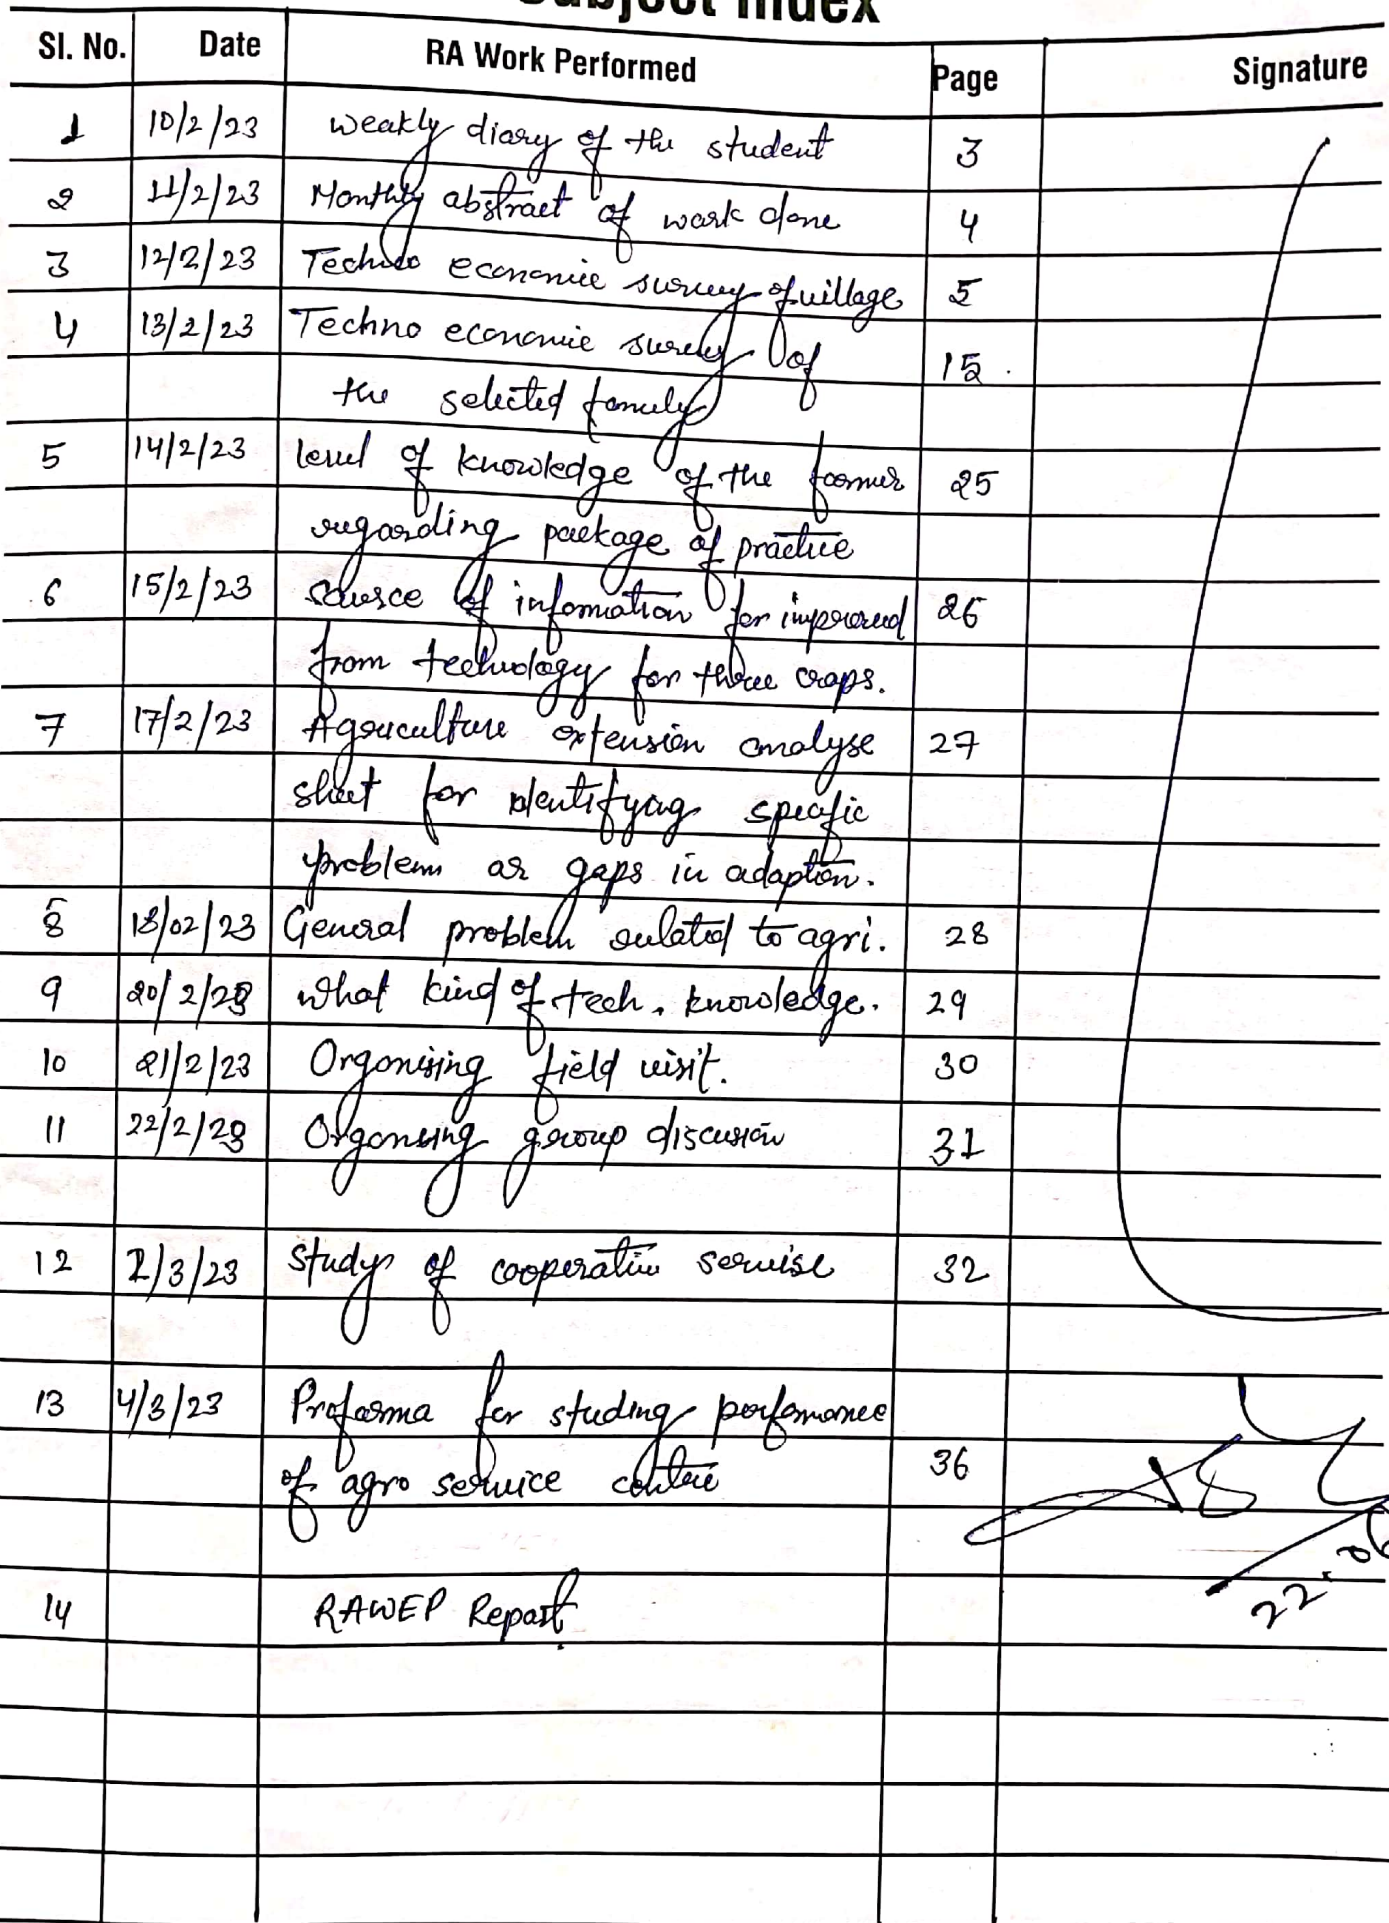 Subject Index
Sl. No. Date RA Work Performed Page Signature
1 10/2/23 weakly diary of the student 3
2 11/2/23 Monthly abstract of work done 4
3 12/2/23 Techno economic survey of village 5
4 13/2/23 Techno economic survey of 15
the selected family
5 14/2/23 level of knowledge of the farmer 25
regarding package of practice
6 15/2/23 source of information for improved 26
from technology for three crops.
7 17/2/23 Agriculture extension analyse 27
sheet for identifying specific
problem or gaps in adaption.
8 18/02/23 General problem related to agri. 28
9 20/2/23 what kind of tech. knowledge. 29
10 21/2/23 Organising field visit. 30
11 22/2/23 Organising group discusion 31
12 2/3/23 Study of cooperative servise 32
13 4/3/23 Proforma for studing perfomance
of agro service centre 36
22.06
14 RAWEP Report